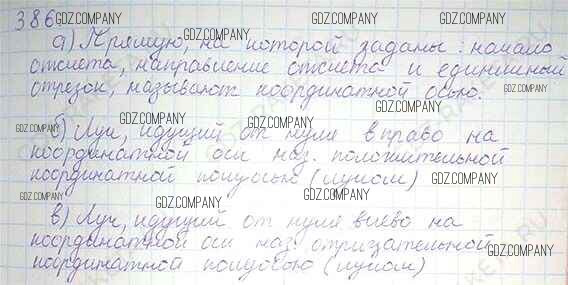 386
а) Прямую, на которой заданы: начало
отсчета, направление отсчета и единичный
отрезок, называют координатной осью.
б) Луч, идущий от нуля вправо на
координатной оси наз. положительной
координатной полуосью (лучом)
в) Луч, идущий от нуля влево на
координатной оси наз. отрицательной
координатной полуосью (лучом)
GDZ.COMPANY
GDZ.COMPANY
GDZ.COMPANY
GDZ.COMPANY
GDZ.COMPANY
GDZ.COMPANY
GDZ.COMPANY
GDZ.COMPANY
GDZ.COMPANY
GDZ.COMPANY
GDZ.COMPANY
GDZ.COMPANY